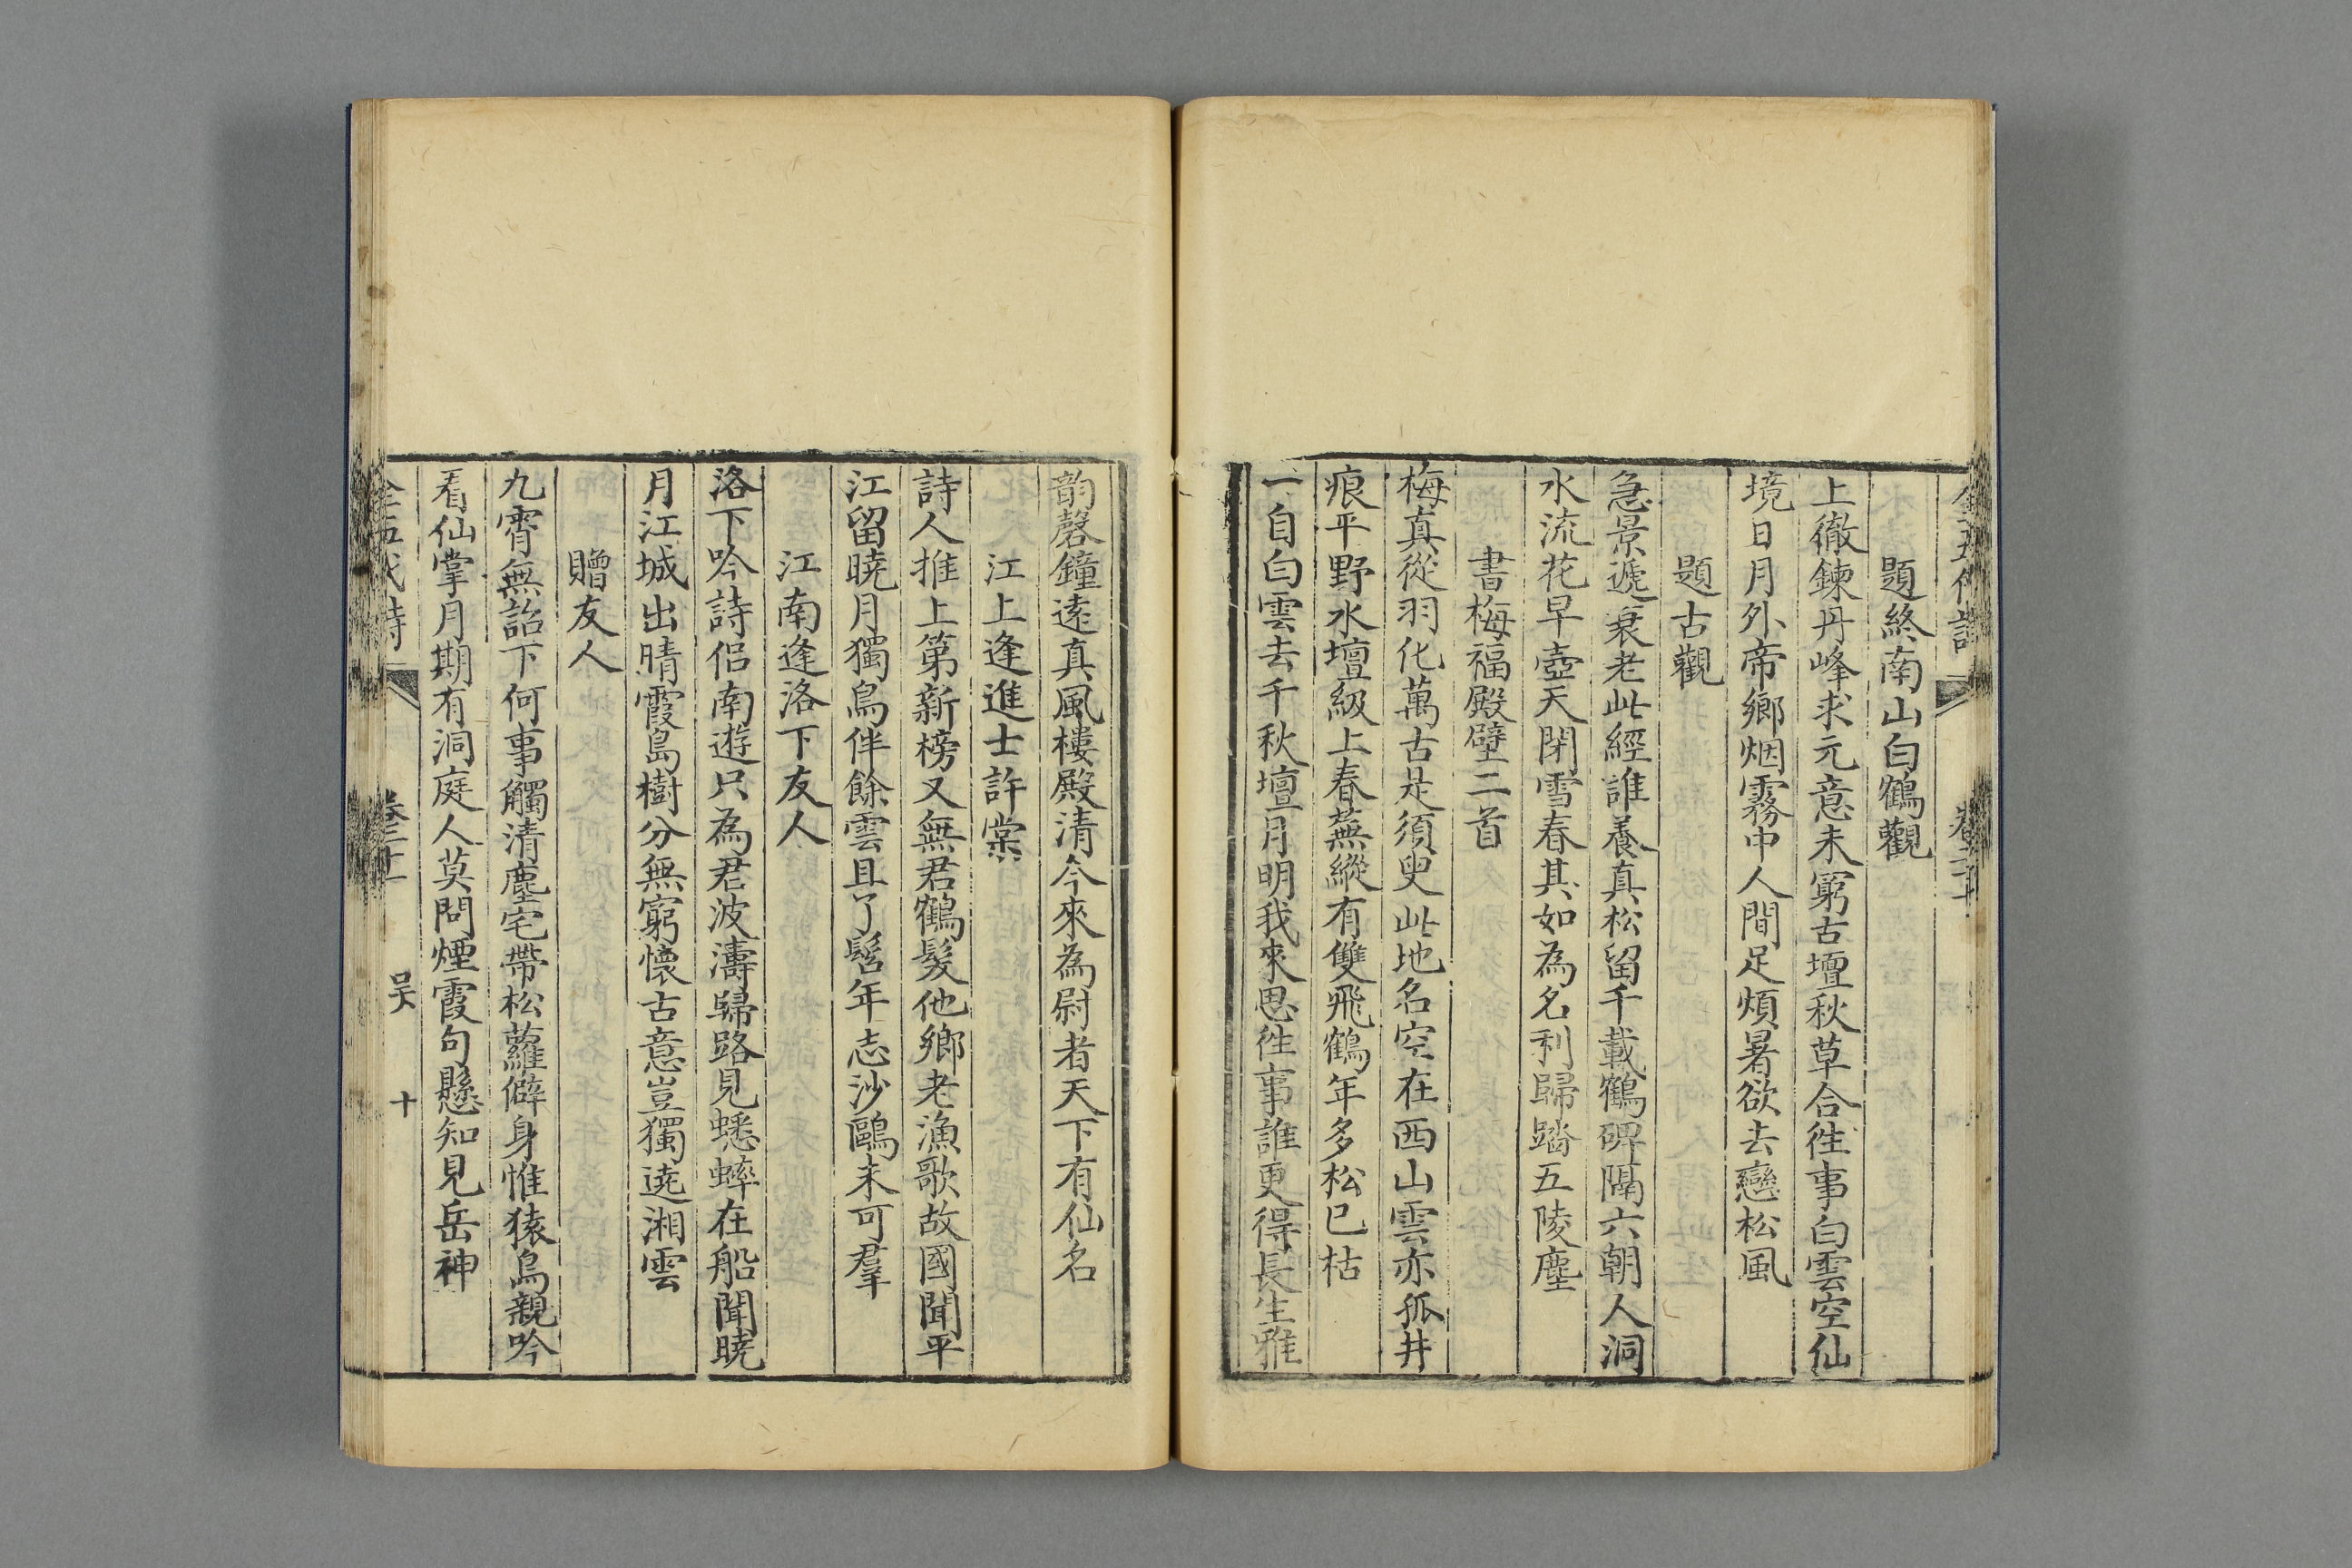 題終南山白鶴觀
上徹鍊丹峰求元意未窮古壇秋草合徃事白雲空仙
境日月外帝鄉烟霧中人間足煩暑欲去戀松風
題古觀
急景遞衰老此經誰養真松留千載鶴碑隔六朝人洞
水流花早壺天閉雪春其如為名利歸踏五陵塵
書梅福殿壁二首
梅真從羽化萬古是須臾此地名空在西山雲亦孤井
痕平野水壇級上春蕪縱有雙飛鶴年多松已枯
一自白雲去千秋壇月明我來思徃事誰更得長生雅
韵磬鐘遠真風樓殿清今來為尉者天下有仙名
江上逢進士許棠
詩人推上第新榜又無君鶴髮他鄉老漁歌故國聞平
江留曉月獨鳥伴餘雲且了髫年志沙鷗未可羣
江南逢洛下友人
洛下吟詩侶南遊只為君波濤歸路見蟋蟀在船聞曉
月江城出晴霞島樹分無窮懷古意豈獨遶湘雲
贈友人
九霄無詔下何事觸清塵宅帶松蘿僻身惟猿鳥親吟
看仙掌月期有洞庭人莫問煙霞句懸知見岳神
全五代詩 吴 十